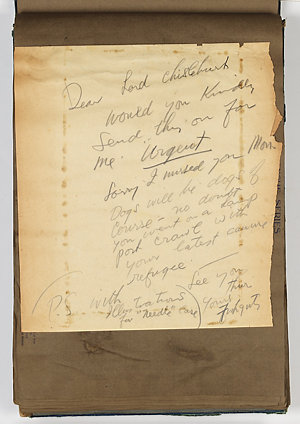 Dear Lord Chislehurst
Would you Kindly
Send this on for
me. Urgent
Sorry I missed you Mon
Dogs will be dogs of
course - no doubt
you went on a
post crawl with
your latest canine
refugee.
See you
Thur
Yours
(P.S. with illustrations
for "Needle" case)